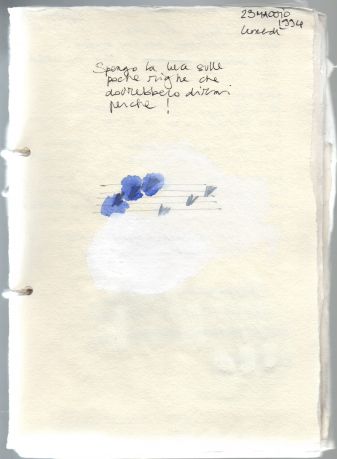 23 MAGGIO
1994
lunedì
Spengo la luce sulle
poche righe che
dovrebbero dirmi
perche!